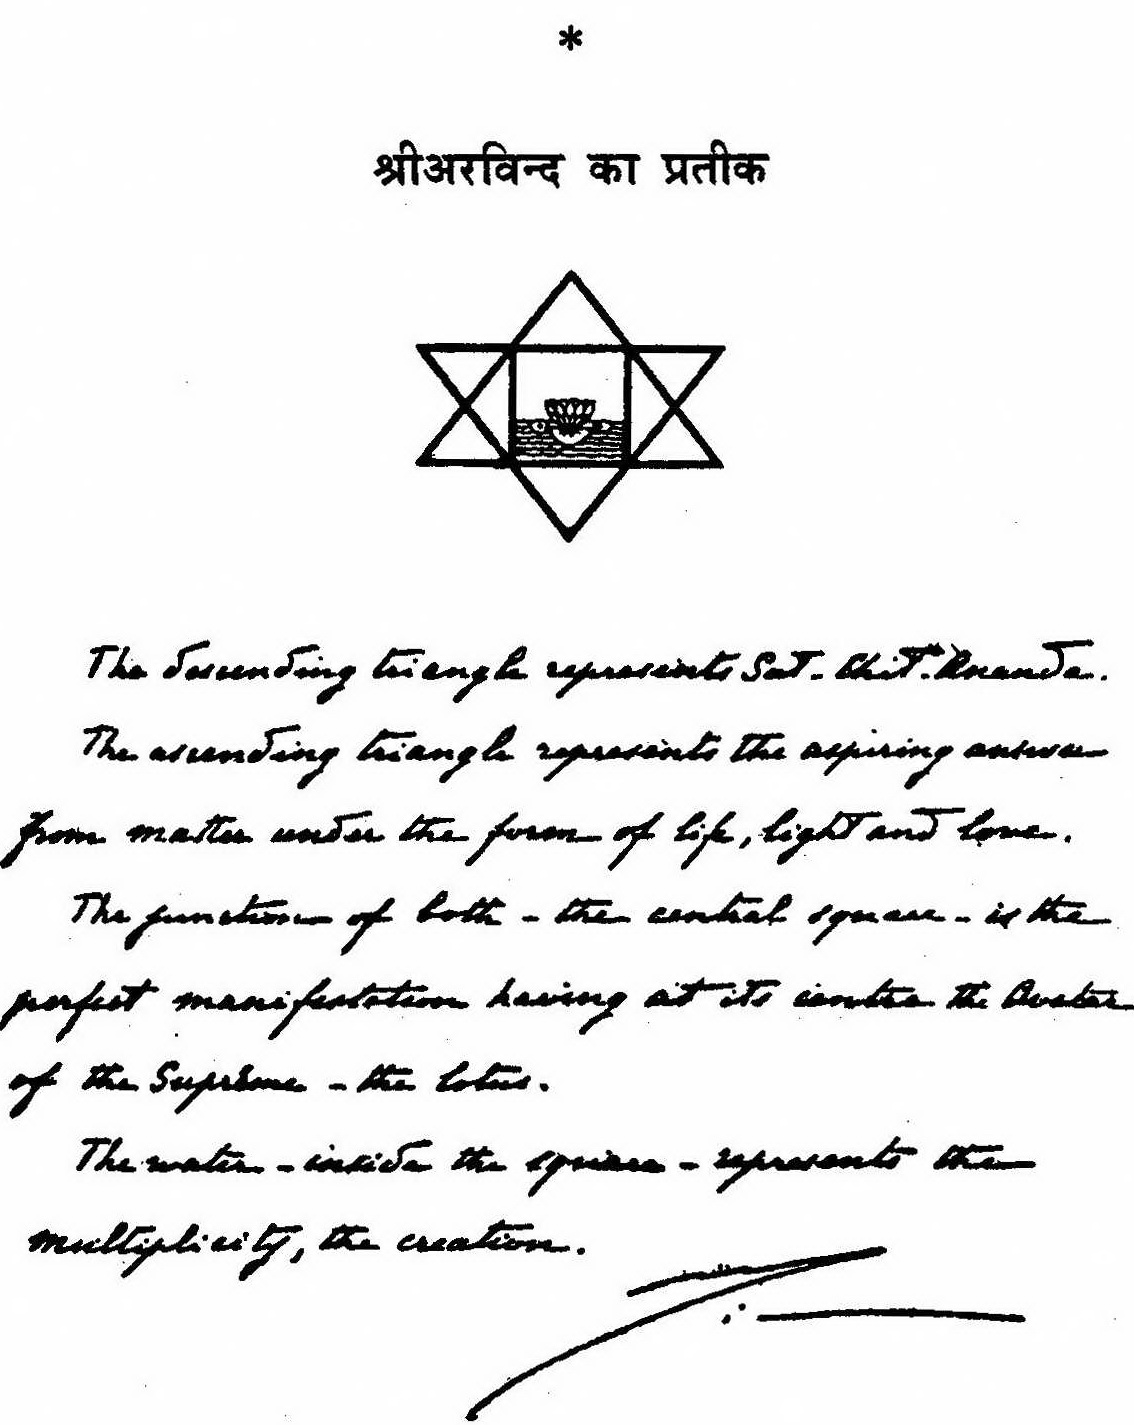 *
श्रीअरविन्द का प्रतीक
The descending triangle represents Sat-Chit-Ananda.
The ascending triangle represents the aspiring answer
from matter under the form of life, light and love.
The junction of both - the central square - is the
perfect manifestation having at its centre the Avatar
of the Supreme - the lotus.
The water - inside the square - represents the
multiplicity, the creation.